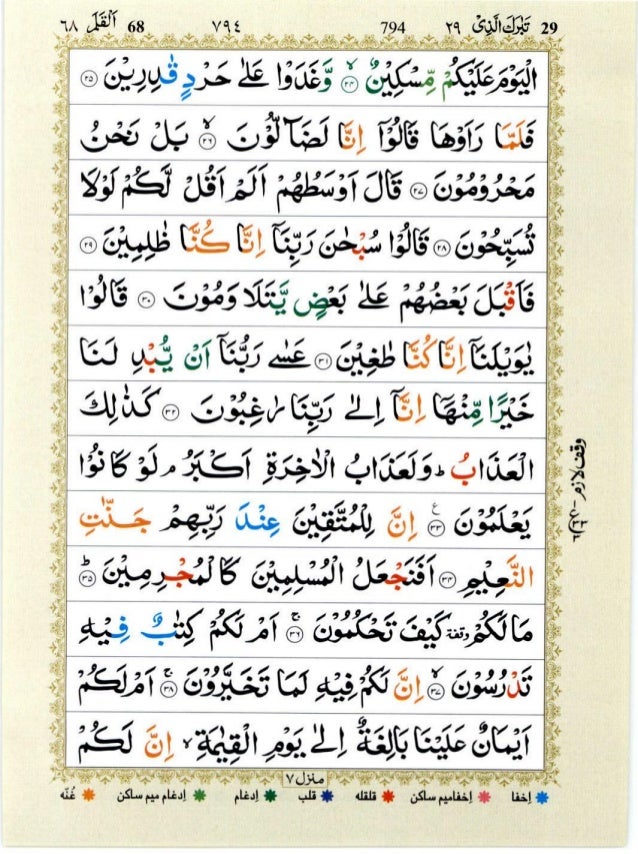 29 تَبٰرَكَ الَّذِىْ ٢٩ 794 ٧٩٤ 68 اَلْقَلَم ٦٨
الْيَوْمَ عَلَيْكُمْ مِّسْكِيْنٌ ۙ‏ ﴿۲۴﴾ وَّغَدَوْا عَلٰى حَرْدٍ قٰدِرِيْنَ ﴿۲۵﴾
فَلَمَّا رَاَوْهَا قَالُوْٓا اِنَّا لَضَآلُّوْنَ ۙ ﴿۲۶﴾ بَلْ نَحْنُ
مَحْرُوْمُوْنَ ﴿۲۷﴾ قَالَ اَوْسَطُهُمْ اَلَمْ اَقُلْ لَّكُمْ لَوْلَا
تُسَبِّحُوْنَ ﴿۲۸﴾ قَالُوْا سُبْحٰنَ رَبِّنَآ اِنَّا كُنَّا ظٰلِمِيْنَ ﴿۲۹﴾
فَاَقْبَلَ بَعْضُهُمْ عَلٰى بَعْضٍ يَّتَلَاوَمُوْنَ ﴿۳۰﴾ قَالُوْا
يٰوَيْلَنَآ اِنَّا كُنَّا طٰغِيْنَ ﴿۳۱﴾ عَسٰى رَبُّنَآ اَنْ يُّبْدِلَنَا
خَيْرًا مِّنْهَآ اِنَّآ اِلٰى رَبِّنَا رٰغِبُوْنَ ﴿۳۲﴾ كَذٰلِكَ
الْعَذَابُ ؕ وَلَعَذَابُ الْاٰخِرَةِ اَكْبَرُ ۘ لَوْ كَانُوْا
يَعْلَمُوْنَ ﴿۳۳﴾ ع اِنَّ لِلْمُتَّقِيْنَ عِنْدَ رَبِّهِمْ جَنّٰتِ
النَّعِيْمِ ﴿۳۴﴾ اَفَنَجْعَلُ الْمُسْلِمِيْنَ كَالْمُجْرِمِيْنَ ؕ ﴿۳۵﴾
مَا لَكُمْ وقفة كَيْفَ تَحْكُمُوْنَ ۚ ﴿۳۶﴾ اَمْ لَكُمْ كِتٰبٌ فِيْهِ
تَدْرُسُوْنَ ۙ ﴿۳۷﴾ اِنَّ لَكُمْ فِيْهِ لَمَا تَخَيَّرُوْنَ ۚ ﴿۳۸﴾ اَمْ لَكُمْ
اَيْمَانٌ عَلَيْنَا بَالِغَةٌ اِلٰى يَوْمِ الْقِيٰمَةِ ۙ اِنَّ لَكُمْ
وقف لازم
منزل ٧
اِخفا اِخفامیم ساکن قلقله قلب اِدغام اِدغام میم ساکن غُنّه